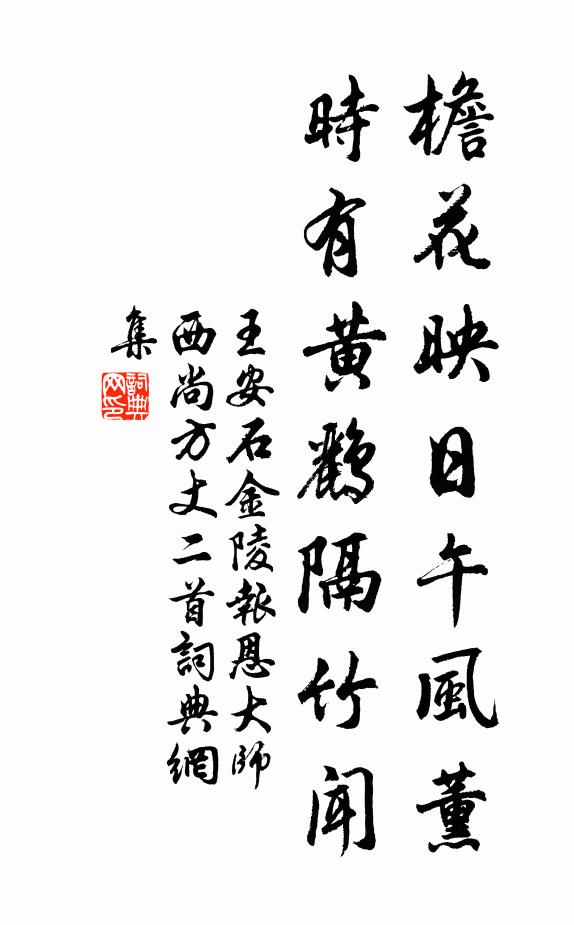 檐花映日午風薰
時有黃鸝隔竹聞
王安石金陵報恩大師
西尚方丈二首詞典網
集
詞典
网印